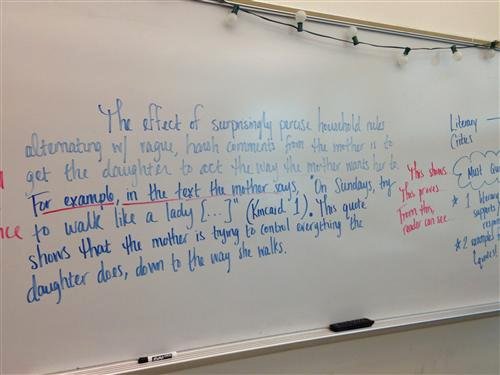 The effect of surprisingly percise household rules
alternating w/ vague, harsh comments from the mother is to
get the daughter to act the way the mother wants her to.
For example, in the text the mother says, "On Sundays, try
to walk like a lady [...]" (Kincaid 1). This quote
shows that the mother is trying to control everything the
daughter does, down to the way she walks.
nce
This shows...
This proves...
From this,
reader can see...
Literary
Critics
Must
* 1 literary
supports
* 2 examples
(quotes!
EXPO